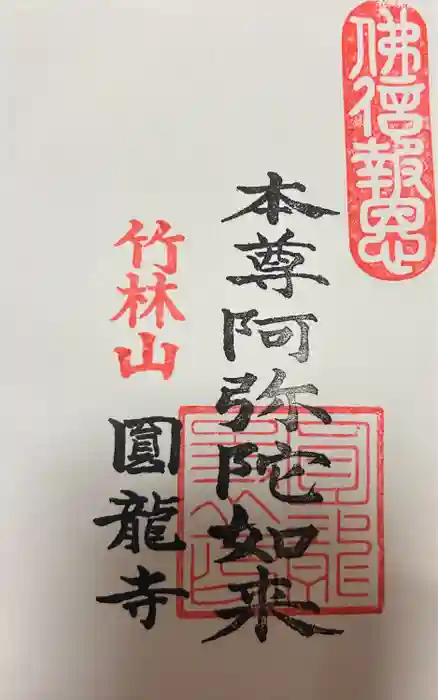 佛信報恩
本尊阿弥陀如来
竹林山
圓龍寺